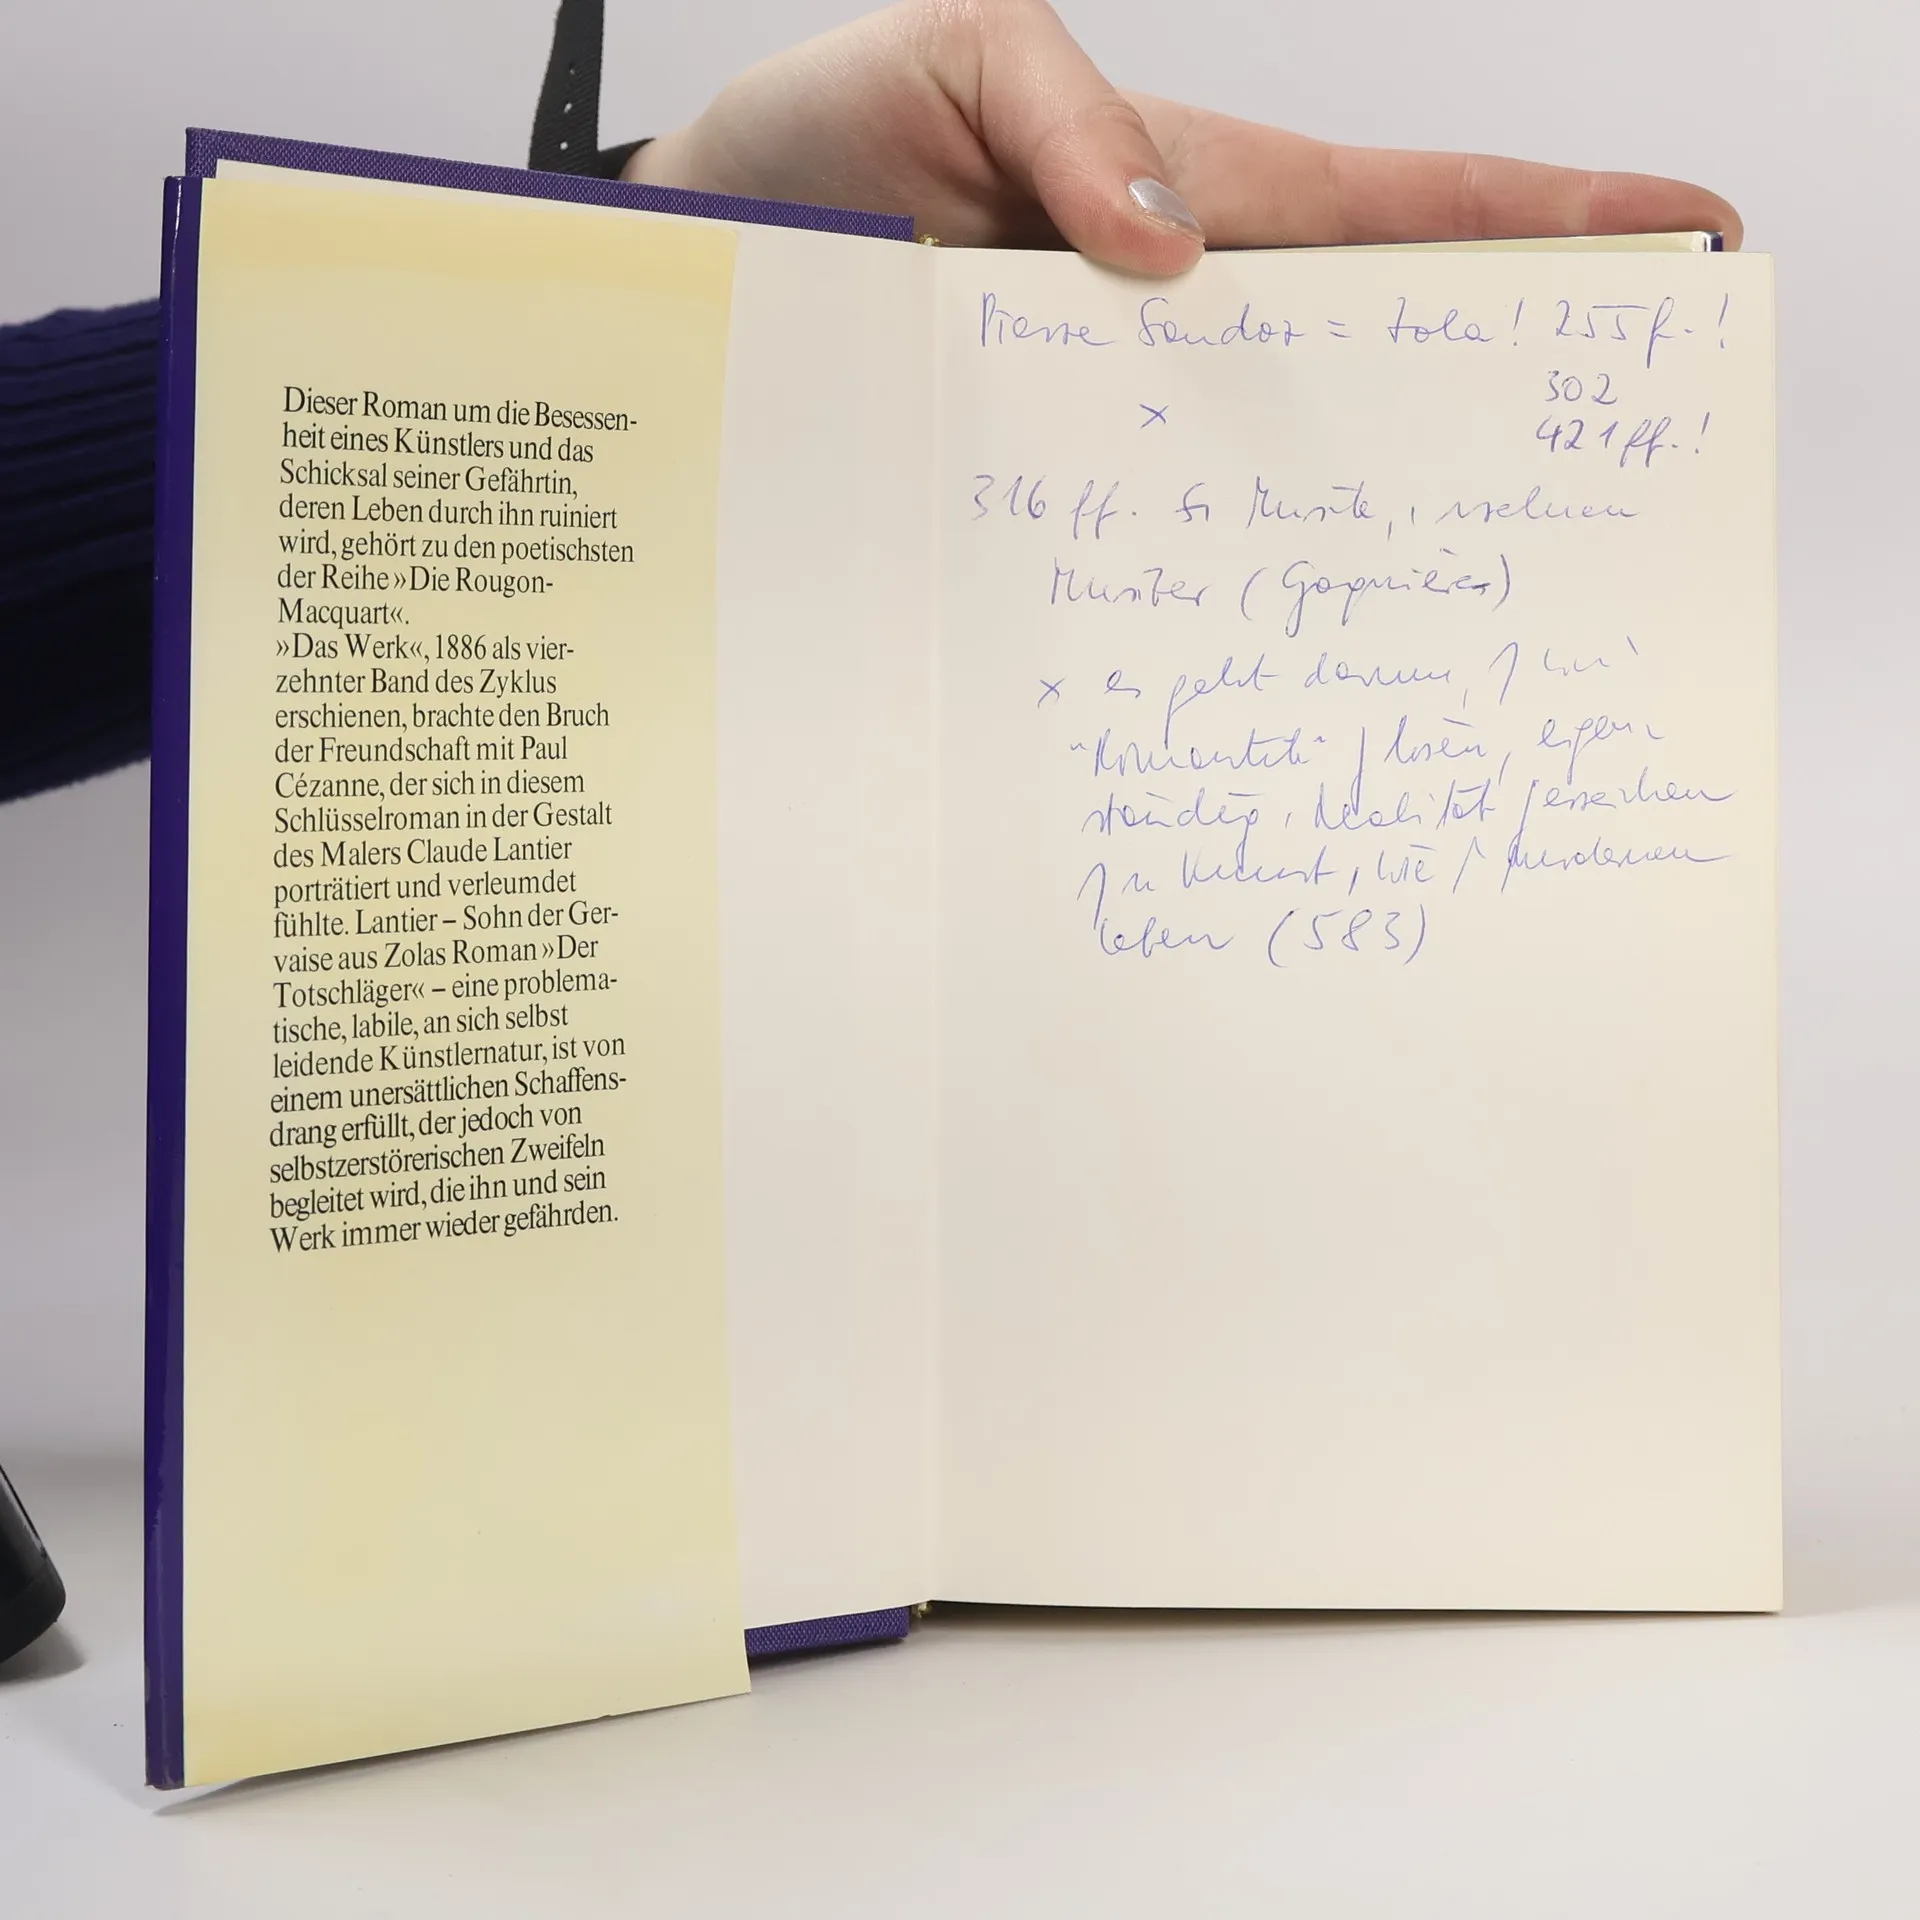 Dieser Roman um die Besessen-
heit eines Künstlers und das
Schicksal seiner Gefährtin,
deren Leben durch ihn ruiniert
wird, gehört zu den poetischsten
der Reihe »Die Rougon-
Macquart«.
»Das Werk«, 1886 als vier-
zehnter Band des Zyklus
erschienen, brachte den Bruch
der Freundschaft mit Paul
Cézanne, der sich in diesem
Schlüsselroman in der Gestalt
des Malers Claude Lantier
porträtiert und verleumdet
fühlte. Lantier – Sohn der Ger-
vaise aus Zolas Roman »Der
Totschläger« – eine problema-
tische, labile, an sich selbst
leidende Künstlernatur, ist von
einem unersättlichen Schaffens-
drang erfüllt, der jedoch von
selbstzerstörerischen Zweifeln
begleitet wird, die ihn und sein
Werk immer wieder gefährden.
Pierre Sandoz = Zola! 255 f.!
302
x 421 ff.!
316 ff.
(Gagnière)
x es geht darum,
"Romantik" lösen, eigen
ständig, Realität
Kunst, wie
Leben (583)